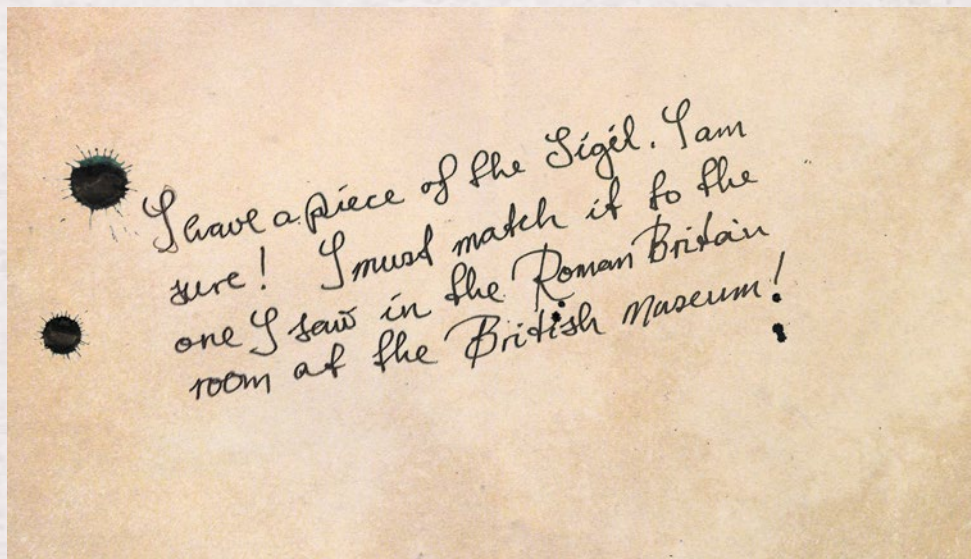 I have a piece of the Sigil. I am
sure! I must match it to the
one I saw in the Roman Britain
room at the British Museum!